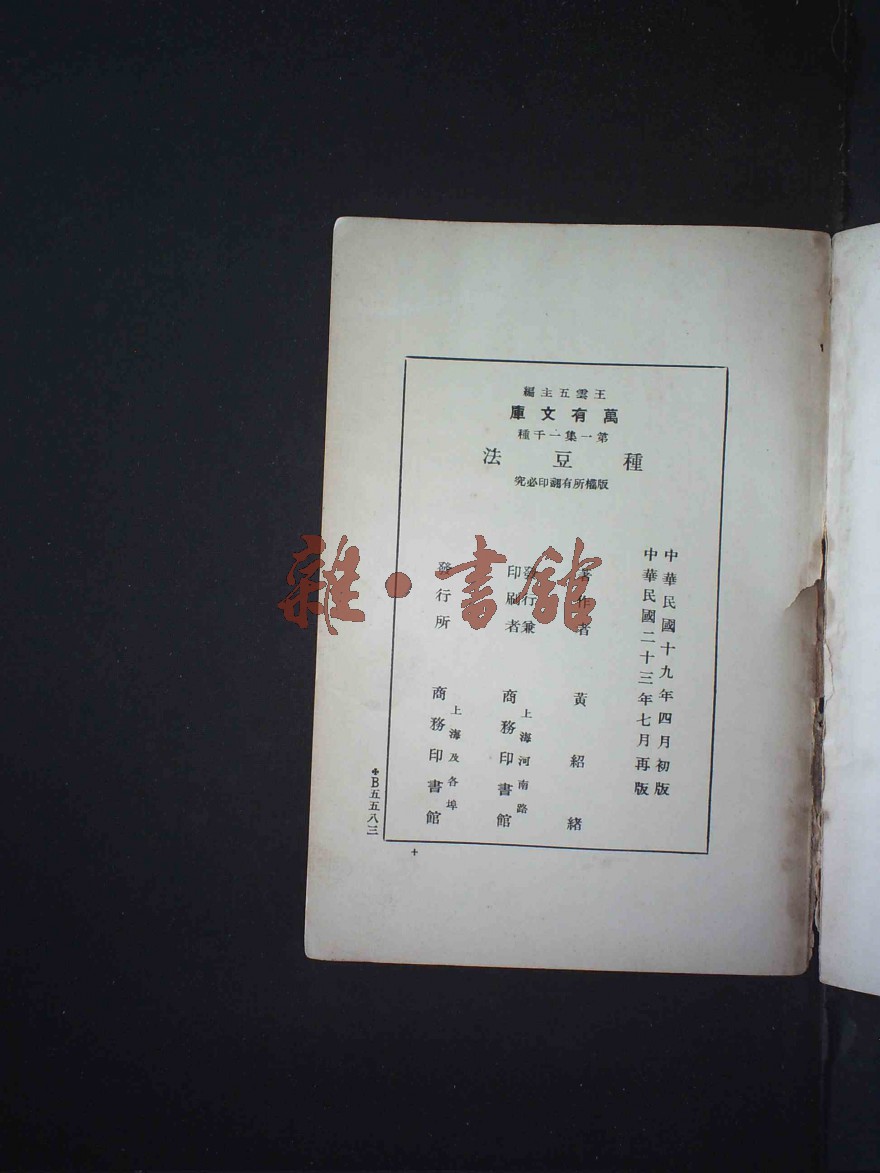 王雲五主編
萬有文庫
第一集一千種
種豆法
版權所有翻印必究
中華民國十九年四月初版
中華民國二十三年七月再版
著作者 黃紹緒
發行兼
印刷者
上海河南路
商務印書館
發行所
上海及各埠
商務印書館
B五五八三
雜·書館